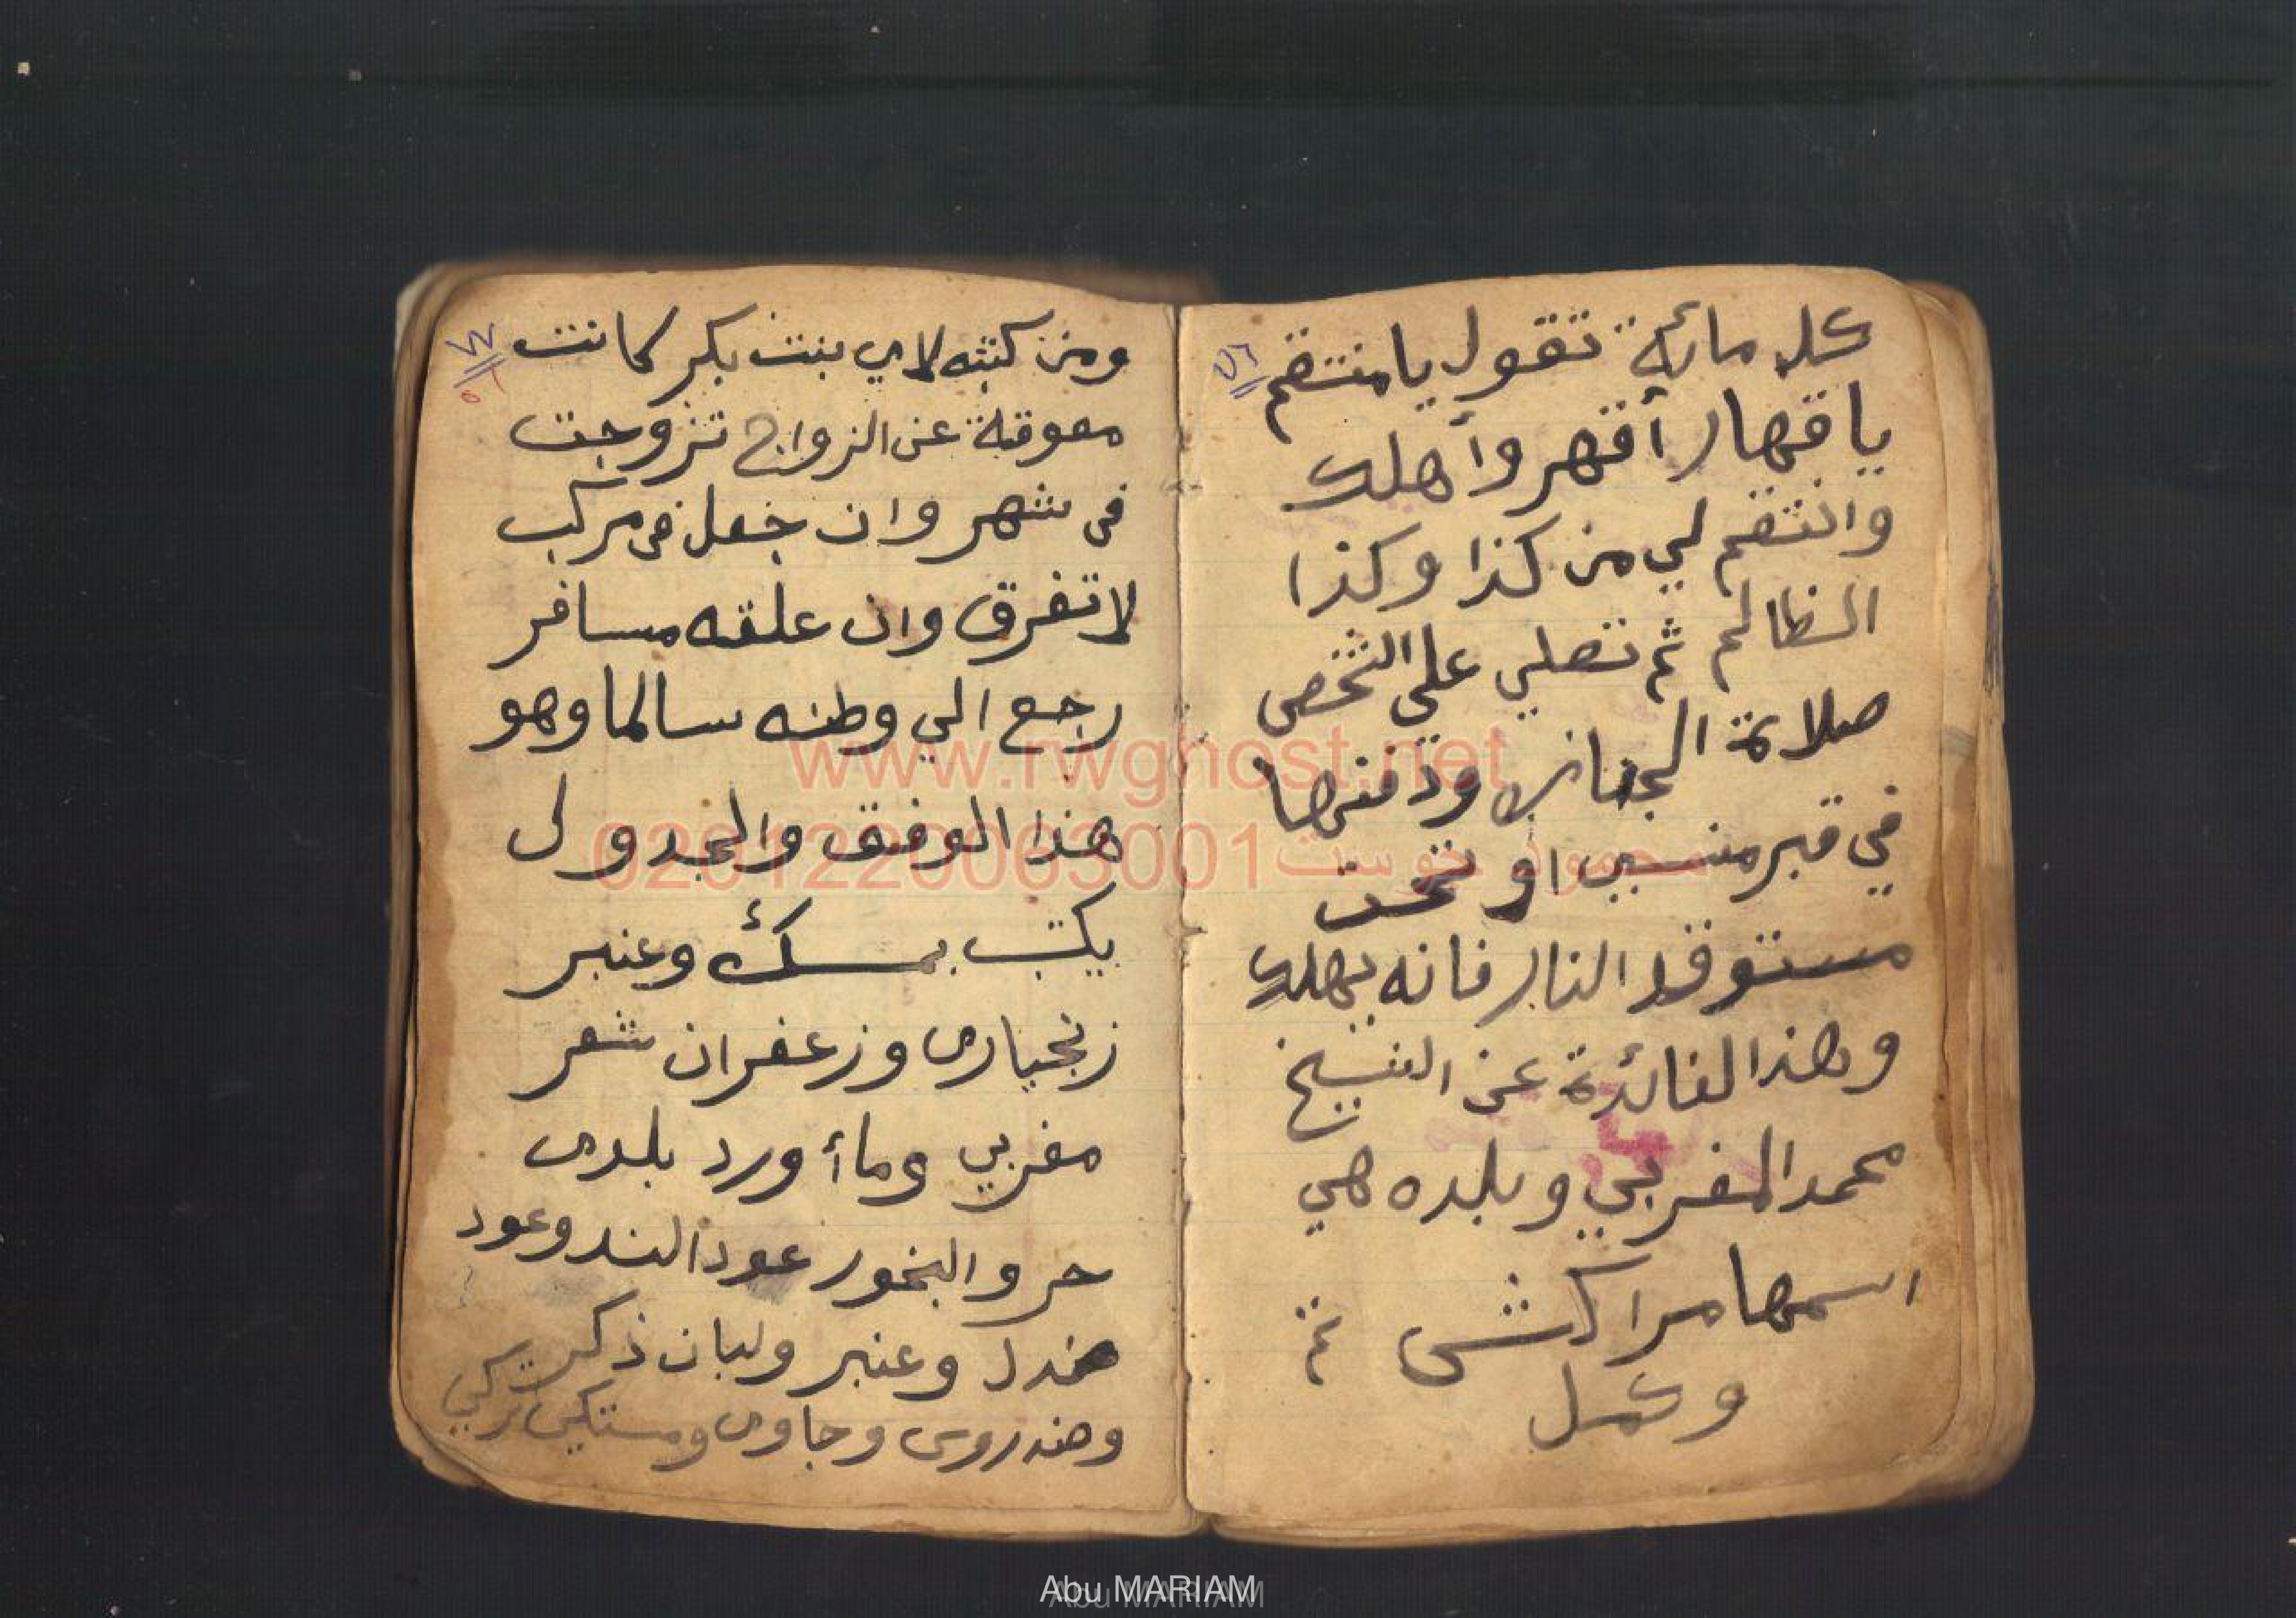 ٧٦
كل مائة تقول يا منتقم
يا قهار أقهر وأهلك
وانتقم لي من كذا وكذا
الظالم ثم تصلي علي الشخص
صلاة الجنازة ودفنها
في قبر منسي او تحت
مستوقد النار فانه يهلك
وهذا الفائدة عن الشيخ
محمد المغربي وبلده هي
اسمها مراكش تمة
وكمل
٧٧
ومن كتبه لاي بنت بكر كانت
معوقة عن الزواج تزوجت
فى شهر وان جعل فى مركب
لا تغرق وان علقه مسافر
رجع الي وطنه سالما وهو
هذا الوفق والجدول
يكتب بمسك وعنبر
زنجبارى وزعفران شعر
مغربي وماأ ورد بلدى
حر والبخور عود الند وعود
صندل وعنبر ولبان ذكر
وصندروس وجاوى ومستكى تركي
www.rwghost.net
محمود جوست 0201220063001
Abu MARIAM